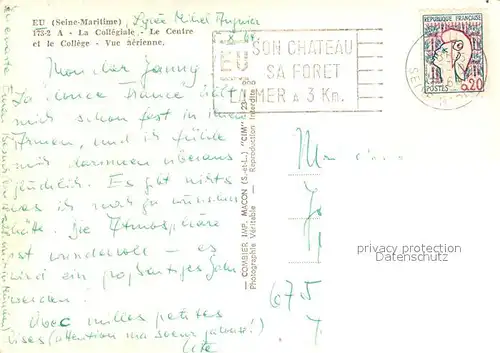 EU (Seine-Maritime)
173-2 A - La Collégiale - Le Centre
et le Collège - Vue aérienne.
EU
SON CHATEAU
SA FORET
LA MER A 3 Km.
REPUBLIQUE FRANÇAISE
POSTES 0,20
Mon cher
La douce France hält
mich schon fest in ihren
Armen, und ich fühle
mich darinnen überaus
glücklich. Es gibt nichts
was ich noch zu wünschen
hätte. Die Atmosphäre
ist wundervoll - es
wird ein großartiges Jahr
werden!
Avec milles petites
bises (attention ma soeur jalouse!)
— COMBIER IMP. MACON (S.-et-L.) "CIM"
Photographie Véritable - Reproduction Interdite
privacy protection
Datenschutz
675